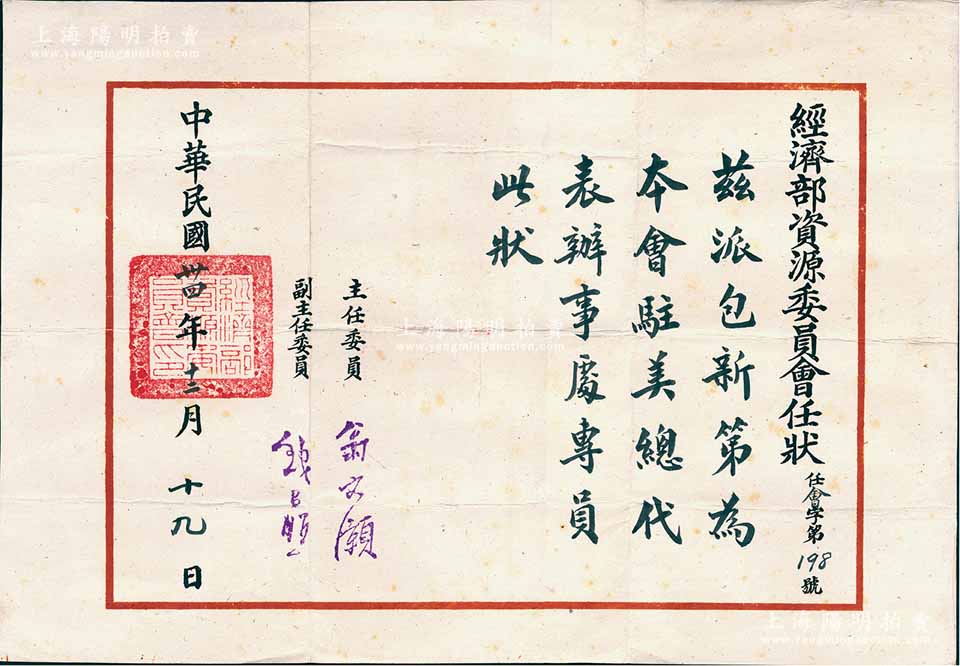 上海陽明拍賣
www.yangmingauction.com
經濟部資源委員會任狀
任會字第198號
茲派包新第為
本會駐美總代
表辦事處專員
此狀
主任委員 翁文灝
副主任委員 錢昌照
中華民國卅四年十二月十九日
上海陽明拍賣
www.yangmingauction.com
上海陽明拍賣
www.yangmingauction.com